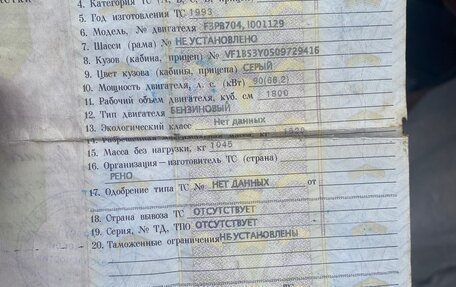 4. Категория ТС (А, В, С, D, прицеп)
5. Год изготовления ТС 1993
6. Модель, № двигателя F3PB704, I001129
7. Шасси (рама) № НЕ УСТАНОВЛЕНО
8. Кузов (кабина, прицеп) № VF1B53Y0509729416
9. Цвет кузова (кабины, прицепа) СЕРЫЙ
10. Мощность двигателя, л. с. (кВт) 90(66,2)
11. Рабочий объем двигателя, куб. см 1800
12. Тип двигателя БЕНЗИНОВЫЙ
13. Экологический класс Нет данных
14. Разрешенная максимальная масса, кг
15. Масса без нагрузки, кг 1045
16. Организация—изготовитель ТС (страна)
РЕНО
17. Одобрение типа ТС № НЕТ ДАННЫХ от
18. Страна вывоза ТС ОТСУТСТВУЕТ
19. Серия, № ТД, ТПО ОТСУТСТВУЕТ
20. Таможенные ограничения НЕ УСТАНОВЛЕНЫ